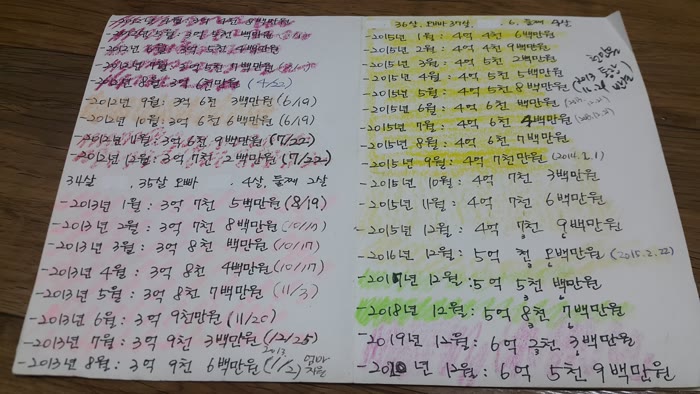 -2012년 8월: 3억 6천만원 (4/22)
-2012년 9월: 3억 6천 3백만원 (6/19)
-2012년 10월: 3억 6천 6백만원 (6/19)
-2012년 11월: 3억 6천 9백만원 (7/22)
-2012년 12월: 3억 7천 2백만원 (7/22)
34살 , 35살 오빠 . 4살, 둘째 2살
-2013년 1월: 3억 7천 5백만원 (8/19)
-2013년 2월: 3억 7천 8백만원
-2013년 3월: 3억 8천 백만원 (10/17)
-2013년 4월: 3억 8천 4백만원 (10/17)
-2013년 5월: 3억 8천 7백만원 (11/3)
-2013년 6월: 3억 9천만원 (11/20)
-2013년 7월: 3억 9천 3백만원 (12/25)
-2013년 8월: 3억 9천 6백만원 엄마 지원
36살, 오빠 37살, . 6, 둘째 4살
-2015년 1월: 4억 4천 6백만원
-2015년 2월: 4억 4천 9백만원
-2015년 3월: 4억 5천 2백만원
-2015년 4월: 4억 5천 5백만원
-2015년 5월: 4억 5천 8백만원
-2015년 6월: 4억 6천 백만원
-2015년 7월: 4억 6천 4백만원
-2015년 8월: 4억 6천 7백만원
-2015년 9월: 4억 7천만원 (2014.2.1)
-2015년 10월: 4억 7천 3백만원
-2015년 11월: 4억 7천 6백만원
-2015년 12월: 4억 7천 9백만원
-2016년 12월: 5억 천 백만원 (2015.2.22)
-2017년 12월: 5억 5천 백만원
-2018년 12월: 5억 8천 7백만원
-2019년 12월: 6억 2천 3백만원
-2020년 12월: 6억 5천 9백만원